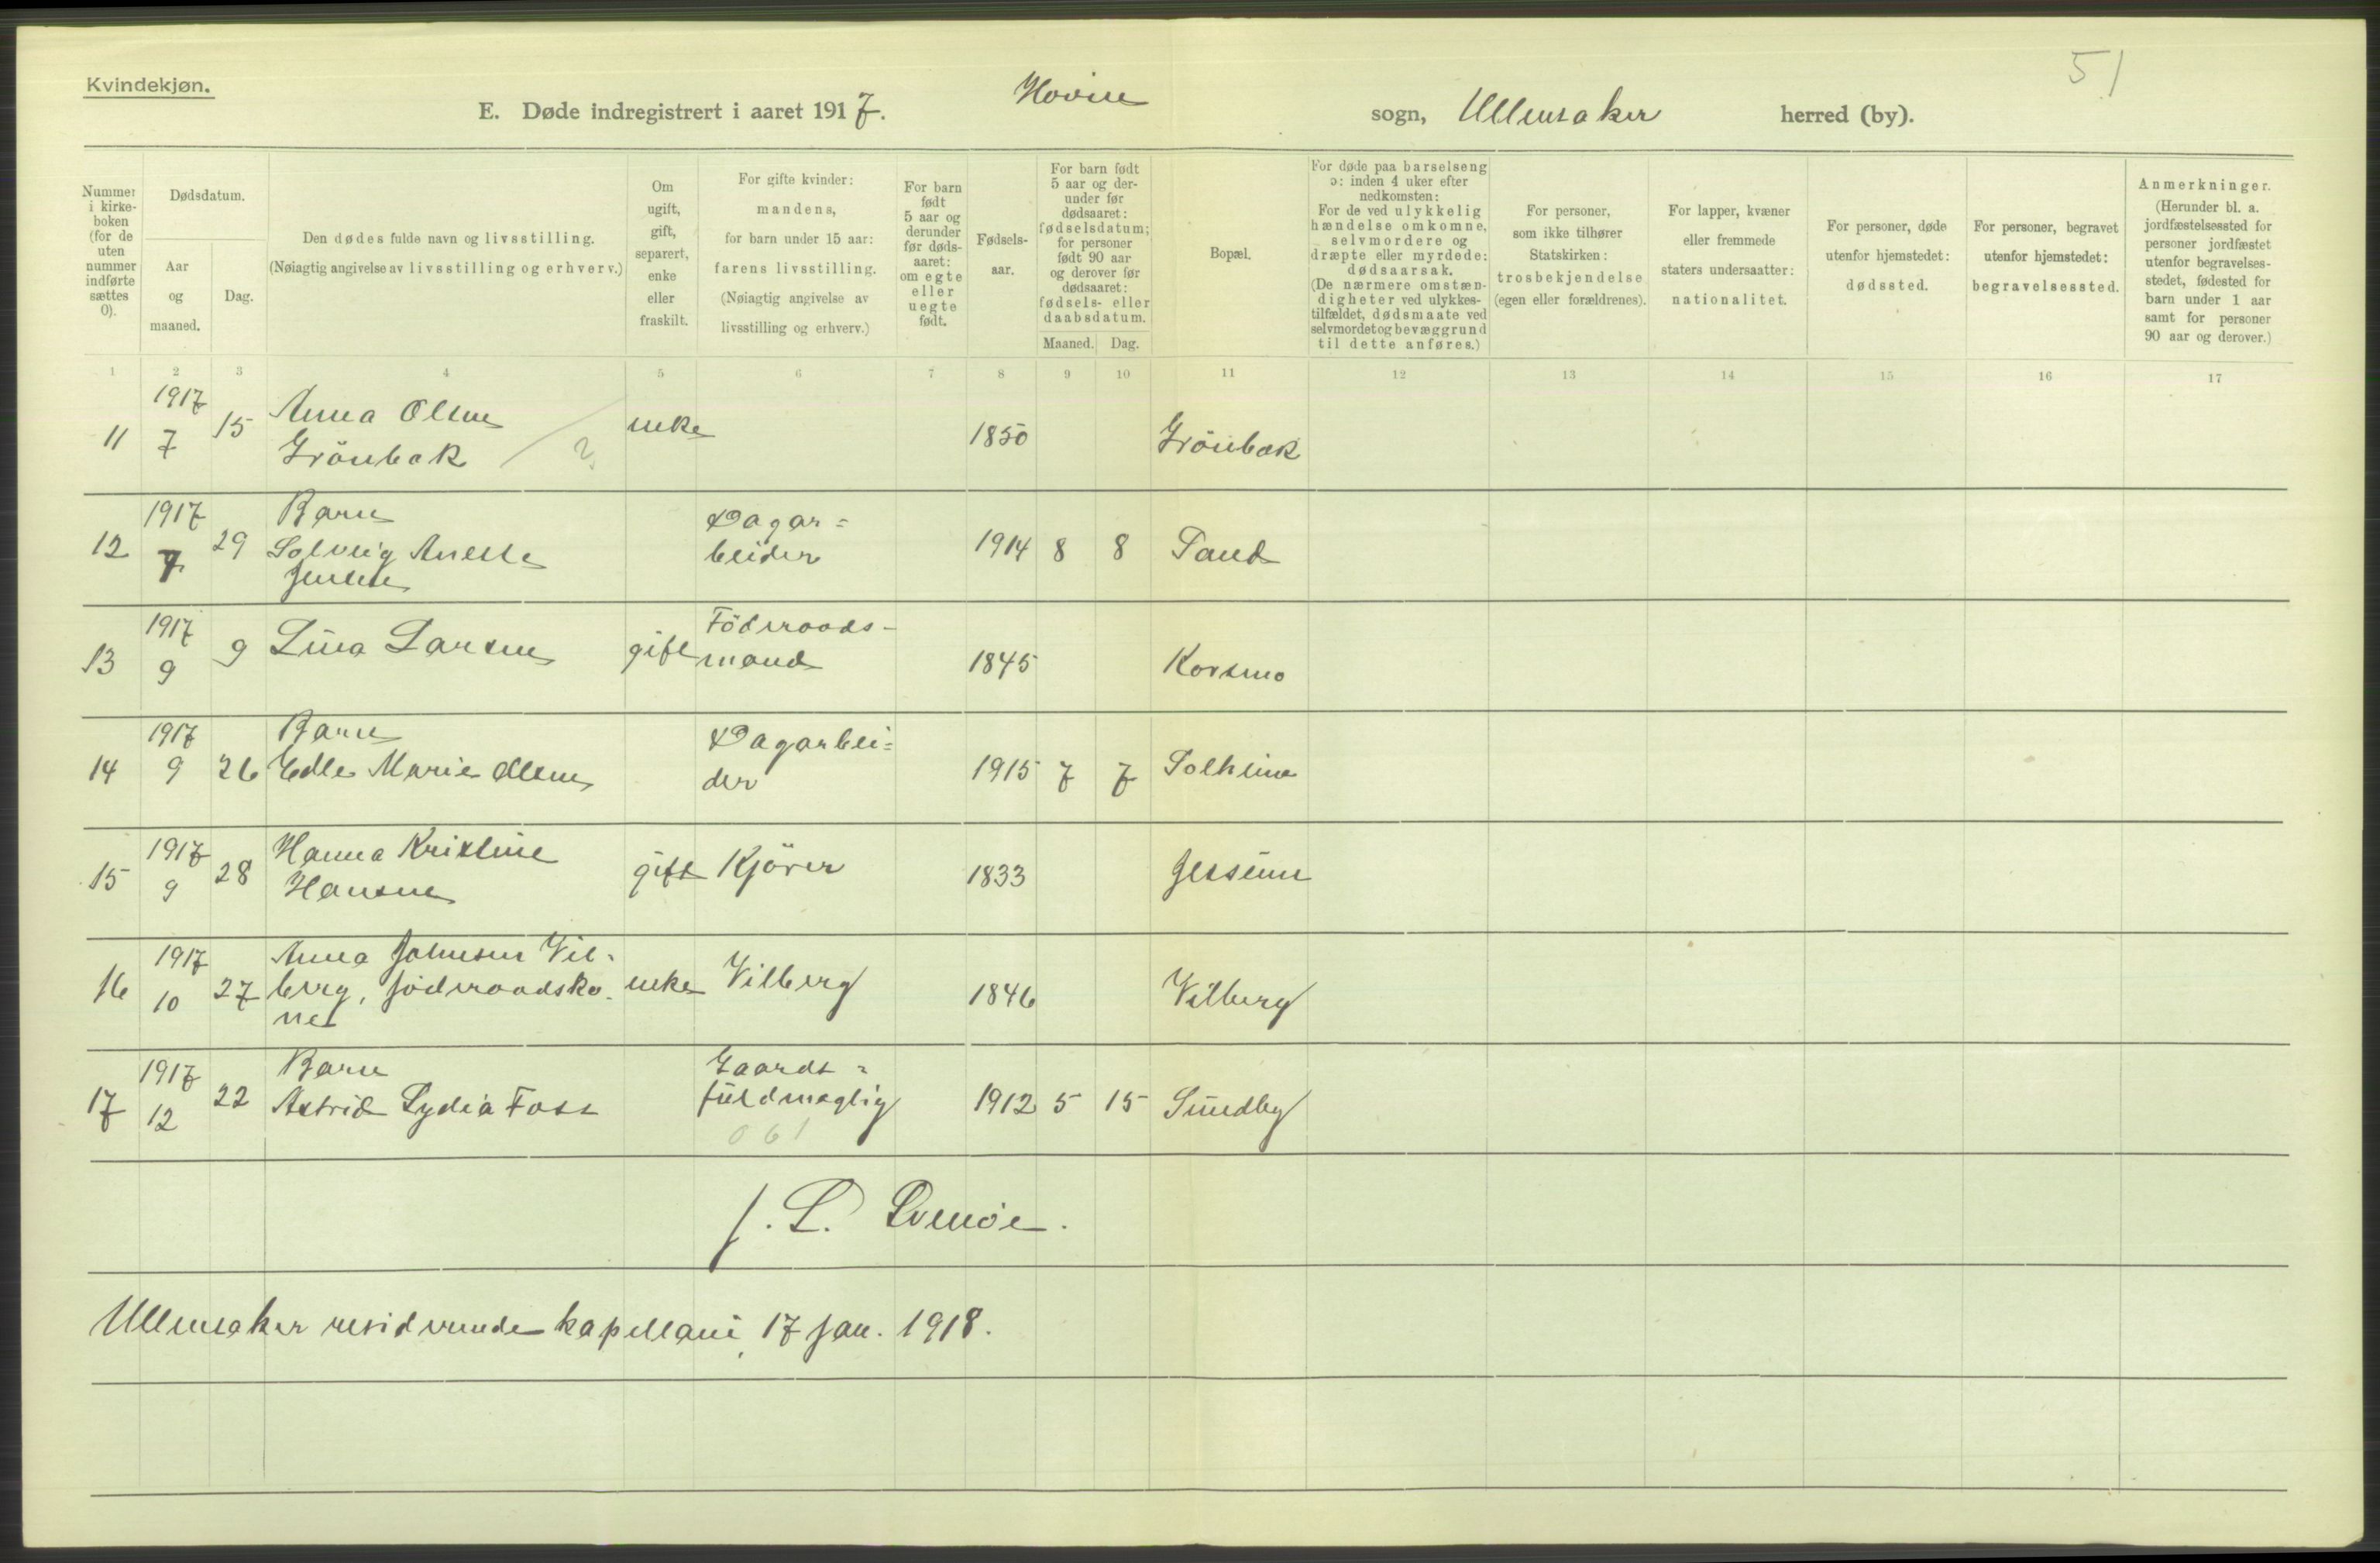 51
Kvindekjøn.
E. Døde indregistrert i aaret 1917. Hovin sogn, Ullensaker herred (by).
Nummer i kirkeboken (for de uten nummer indførte sættes 0).
Dødsdatum.
Aar og maaned.
Dag.
Den dødes fulde navn og livsstilling.
(Nøiagtig angivelse av livsstilling og erhverv.)
Om ugift, gift, separert, enke eller fraskilt.
For gifte kvinder: mandens, for barn under 15 aar: farens livsstilling. (Nøiagtig angivelse av livsstilling og erhverv.)
For barn født 5 aar og derunder før dødsaaret: om egte eller uegte født.
Fødselsaar.
For barn født 5 aar og derunder før dødsaaret: fødselsdatum; for personer født 90 aar og derover før dødsaaret: fødsels- eller daabsdatum.
Maaned. Dag.
Bopæl.
For døde paa barselseng ɔ: inden 4 uker efter nedkomsten: For de ved ulykkelig hændelse omkomne, selvmordere og dræpte eller myrdede: dødsaarsak. (De nærmere omstændigheter ved ulykkestilfældet, dødsmaate ved selvmordet og bevæggrund til dette anføres.)
For personer, som ikke tilhører Statskirken: trosbekjendelse (egen eller forældrenes).
For lapper, kvæner eller fremmede staters undersaatter: nationalitet.
For personer, døde utenfor hjemstedet: dødssted.
For personer, begravet utenfor hjemstedet: begravelsessted.
Anmerkninger. (Herunder bl. a. jordfæstelsessted for personer jordfæstet utenfor begravelsesstedet, fødested for barn under 1 aar samt for personer 90 aar og derover.)
1 2 3 4 5 6 7 8 9 10 11 12 13 14 15 16 17
11 1917 7 15 Anna Olsen Grönbæk enke 1850 Grönbæk
12 1917 7 29 Barn Solveig Anette Jensen Dagarbeider 1914 8 8 Sand
13 1917 9 9 Lina Larsen gift Föderaadsmand 1845 Korsmo
14 1917 9 26 Barn Edle Marie Olsen Dagarbeider 1915 7 7 Solheim
15 1917 9 28 Hanna Kristine Hansen gift Kjörer 1833 Jessum
16 1917 10 27 Anna Johnsen Vilberg, föderaadskone enke Vilberg 1846 Vilberg
17 1917 12 22 Barn Astrid Lydia Foss Gaardsfuldmægtig 1912 5 15 Sundby
061
Ullensaker residerende kapellani, 17 jan. 1918.